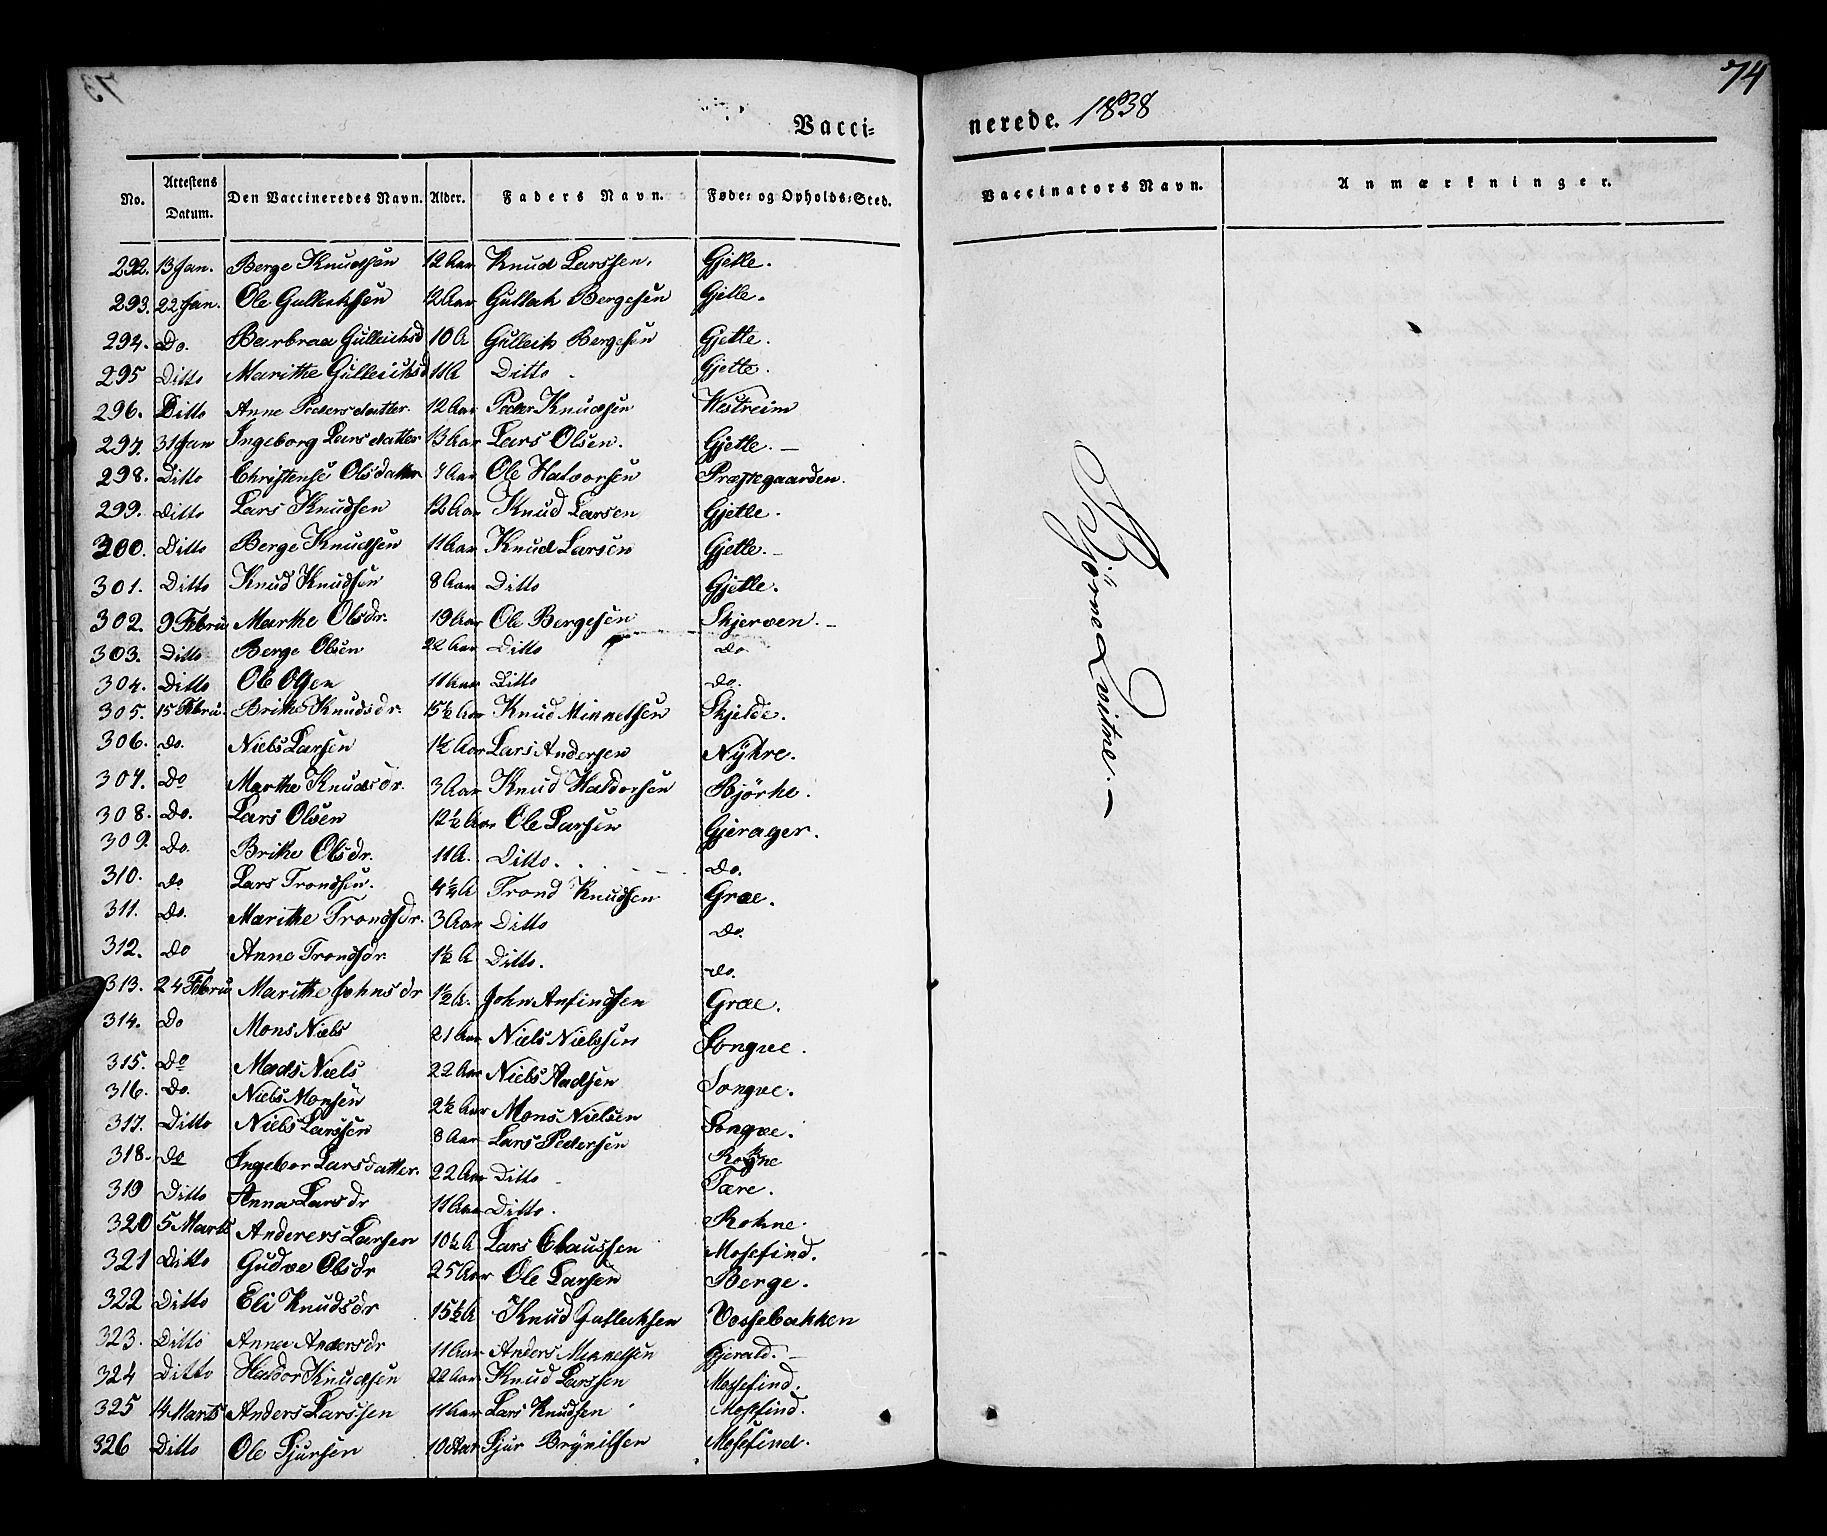 74
Vacci=
nerede. 1838
No. Attestens Datum. Den Vaccineredes Navn. Alder. Faders Navn. Føde= og Opholds=Sted. Vaccinators Navn. Anmærkninger.
292. 13 Jan. Berge Knudsen 12 Aar Knud Larssen. Gjelle.
293. 22 Jan. Ole Gulleiksen 12 Aar Gulleik Bergesen Gjelle.
294. Do. Barbraa Gulleiksd 10 A Gulleik Bergesen Gjelle.
295 Ditto Marithe Gulleiksd 11 A Ditto Gjelle.
296. Ditto Anne Pedersdatter. 12 Aar Peder Knudsen Westreim
297. 31 Jan Ingeborg Larsdatter 13 Aar Lars Olsen. Gjelle. —
298. Ditto Christense Olsdatter 7 Aar Ole Halvorsen Præstegaarden.
299. Ditto Lars Knudsen 12 Aar Knud Larsen Gjelle.
300. Ditto Berge Knudsen 11 Aar Knud Larsen Gjelle. —
301. Ditto Knud Knudsen 8 Aar Ditto Gjelle.
302. 9 Febru Marthe Olsdr. 19 Aar Ole Bergesen Skjerven. —
303. Ditto Berge Olsen 22 Aar Ditto do
304. Ditto Ole Olsen 11 Aar Ditto do.
305. 15 Febru. Brithe Knudsdr. 15½ Aar Knud Minnelsen Skjelde.
306. do. Niels Larsen 1½ Aar Lars Andersen Nÿkre.
307. Do Marthe Knudsdr. 3 Aar Knud Haldorsen Bjørke.
308. Do. Lars Olsen 12½ Aar Ole Larsen Gjerager.
309. Do. Brithe Olsdr. 11 A. Ditto. do.
310. do Lars Trondsen. 4½ A Trond Knudsen Græe.
311. Do. Marithe Trondsdr. 3 Aar Ditto do.
312. Do Anne Trondsdr. 1½ A Ditto. do.
313. 24 Febru Marithe Johnsdr 1½ A. John Anfindsen Græe.
314. Do Mons Niels 21 Aar Niels Nielssen Songve.
315. Do Mads Niels 22 Aar Niels Madsen Songve.
316. Do. Niels Monsen 2½ Aar Mons Nielsen Songve.
317. Ditto Niels Larssen 8 Aar Lars Pedersen Rokne
318. do Ingebor Larsdatter. 22 Aar Ditto Tære.
319 Ditto Anna Larsdr 11 Aar Ditto. Rokne
320 5 Marts Anderers Larsen 10½ A Lars Claussen Mosefind.
321 Ditto Gudve Olsdr 25 Aar Ole Larsen Berge.
322 Ditto Eli Knudsdr 15½ A Knud Gulleiksen Vossebakken
323. Ditto Anna Andersdr 11 Aar Anders Minnelsen Gjerald. —
324 Ditto Haldor Knudsen 22 Aar Knud Larssen Mosefind.
325 14 Marts Anders Larssen 11 Aar Lars Knudsen Mosefind.
326 Ditto Ole Sjursen 10 Aar Sjur Brÿnilsen Mosefind.
Bjørne Lvitne. —